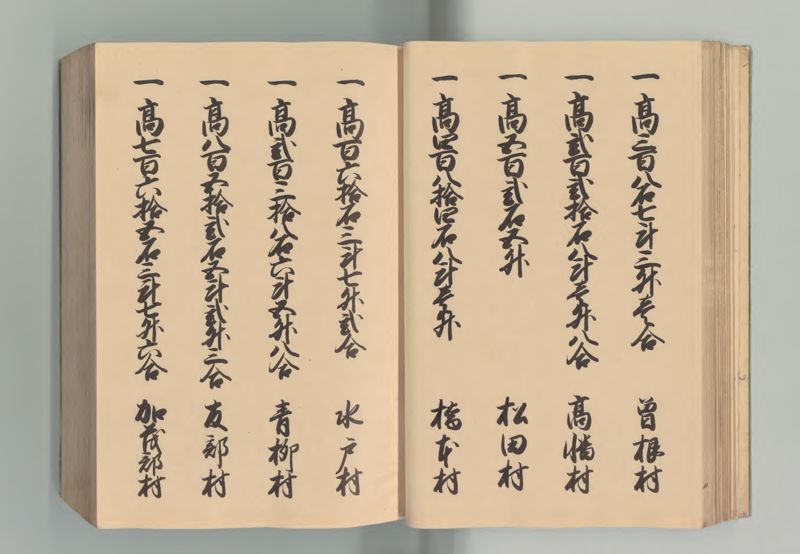 一 高三百八石七斗三升壱合 曽根村
一 高弐百弐拾石八斗壱升八合 高幡村
一 高五百弐石五升 松田村
一 高四百八拾四石八斗壱升 橋本村
一 高百六拾石三斗七升弐合 水戸村
一 高弐百三拾八石六斗五升八合 青柳村
一 高八百五拾弐石五斗弐升三合 友部村
一 高七百六拾五石三斗七升六合 加茂部村